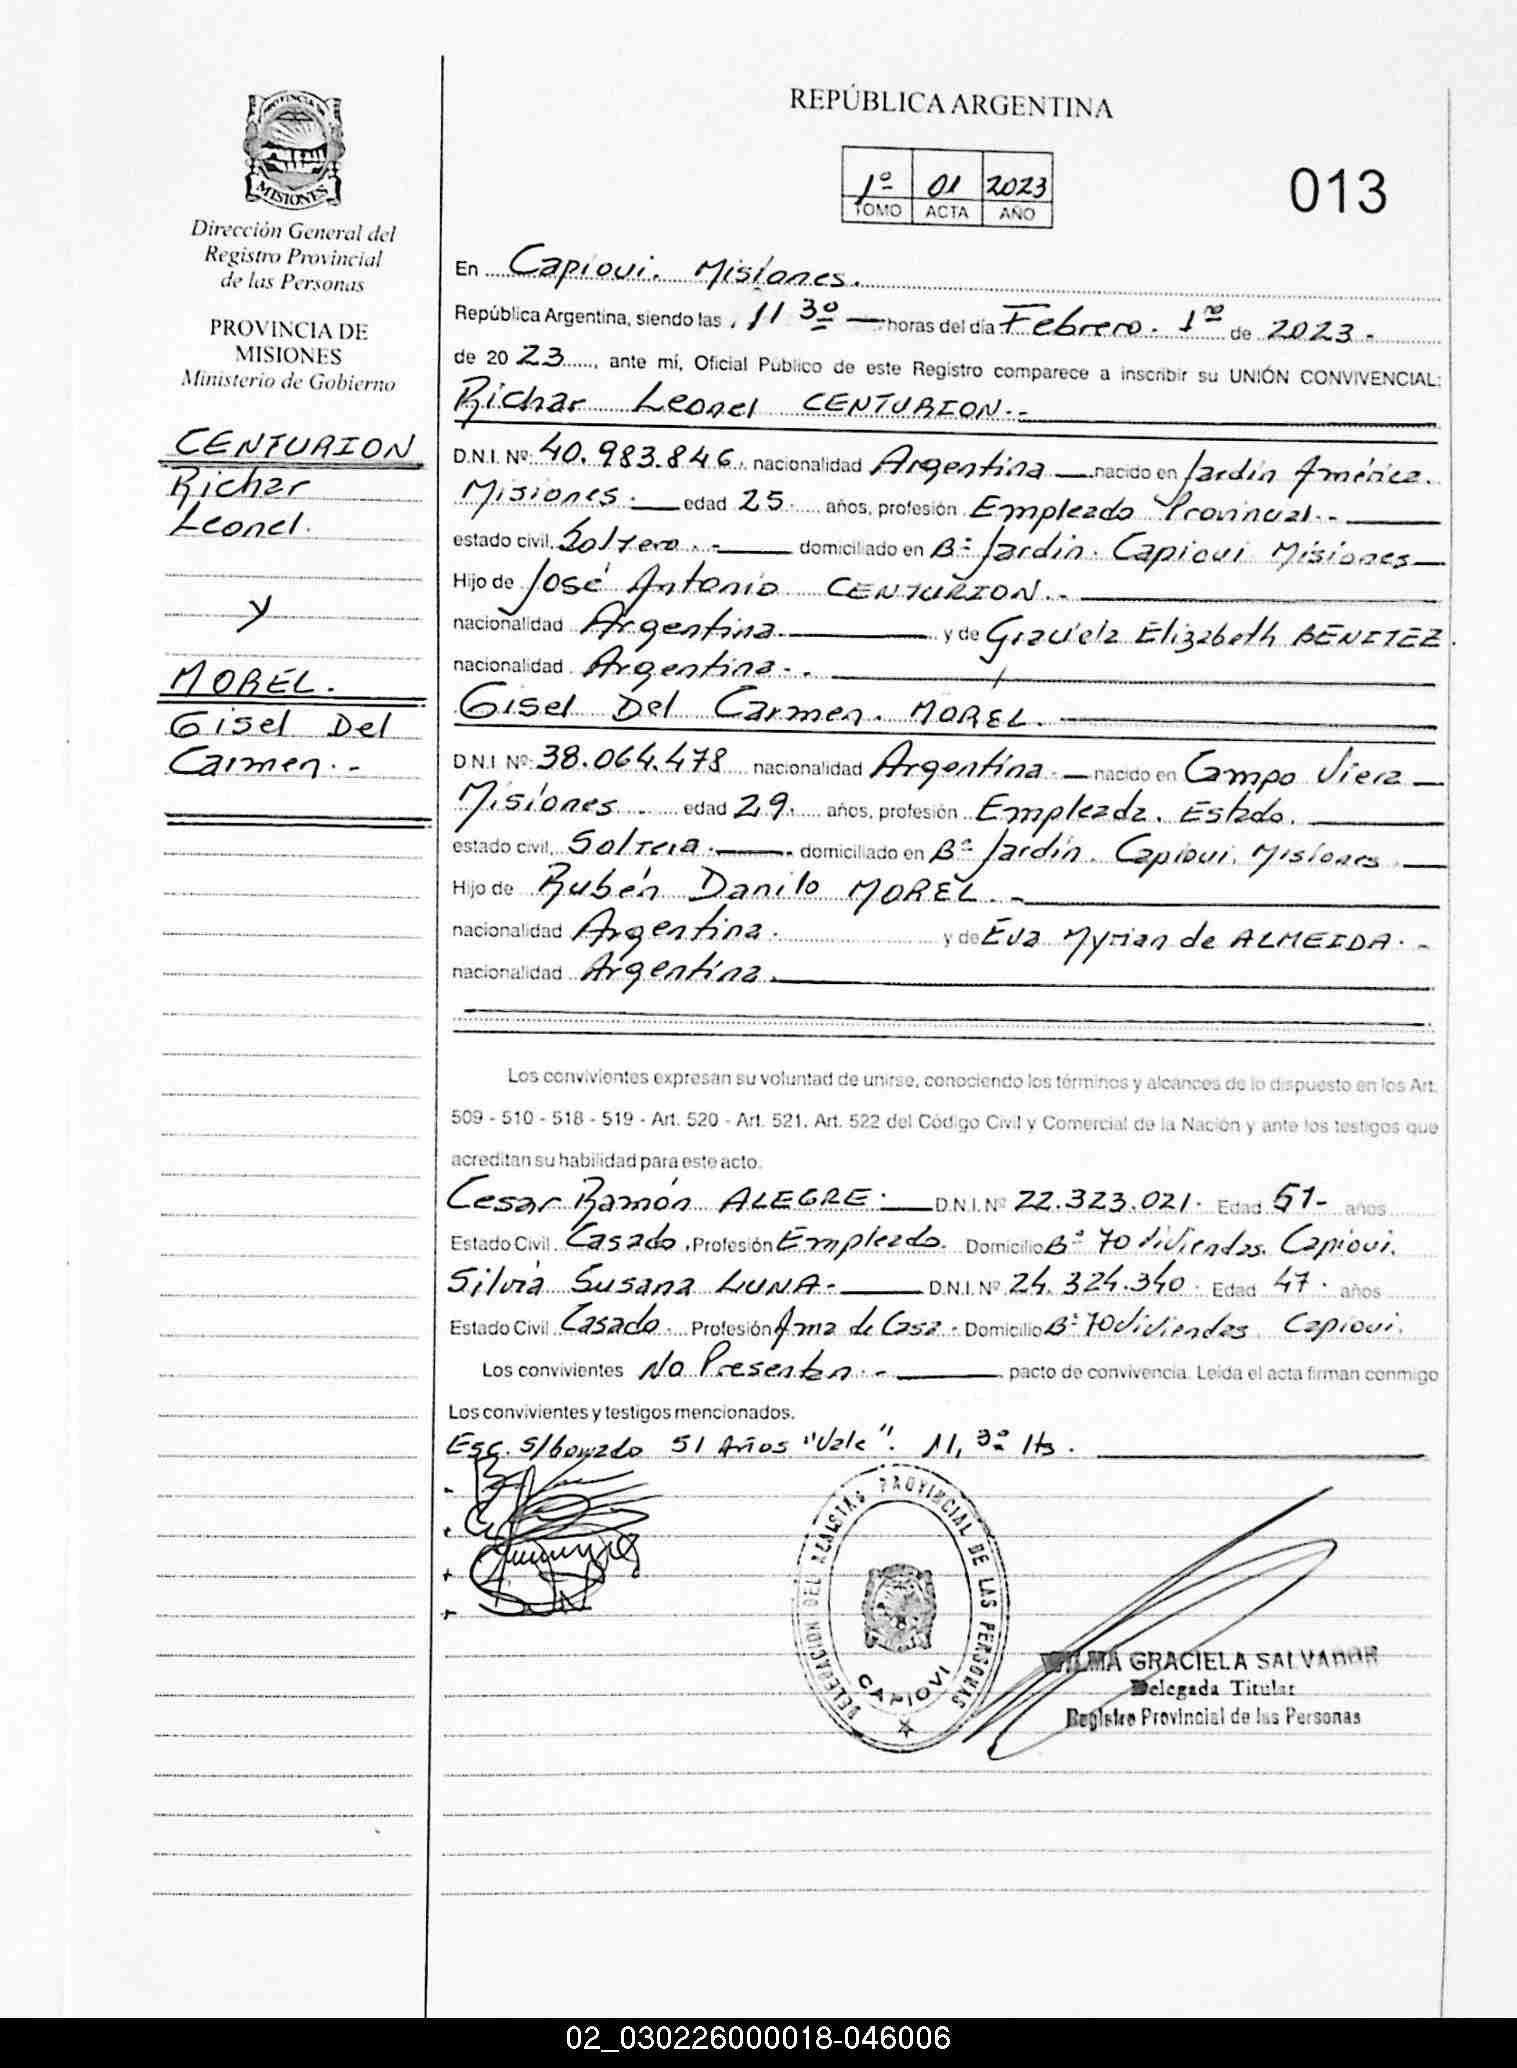 PROVINCIA DE
MISIONES
Dirección General del
Registro Provincial
de las Personas
PROVINCIA DE
MISIONES
Ministerio de Gobierno
CENTURION
Richar
Leonel.
y
MOREL.
Gisel Del
Carmen.-
REPÚBLICA ARGENTINA
1º 01 2023
TOMO ACTA AÑO
013
En Capiovi. Misiones.
República Argentina, siendo las 11 30 — horas del día Febrero. 1º de 2023.-
de 20 23, ante mí, Oficial Público de este Registro comparece a inscribir su UNIÓN CONVIVENCIAL:
Richar Leonel CENTURION.-
D.N.I. Nº: 40.983.846. nacionalidad Argentina — nacido en Jardín América.
Misiones. — edad 25. años, profesión Empleado Provincial.-
estado civil. Soltero.- domiciliado en Bº Jardín. Capiovi Misiones—
Hijo de José Antonio CENTURION.-
nacionalidad Argentina. y de Graciela Elizabeth BENITEZ.
nacionalidad Argentina-.
Gisel Del Carmen. MOREL.
D.N.I. Nº: 38.064.478 nacionalidad Argentina.— nacido en Campo Viera—
Misiones. edad 29. años, profesión Empleada. Estado.
estado civil, Soltera. domiciliado en Bº Jardín. Capiovi. Misiones.—
Hijo de Rubén Danilo MOREL.-
nacionalidad Argentina. y de Eva Myrian de ALMEIDA.-
nacionalidad Argentina.
Los convivientes expresan su voluntad de unirse, conociendo los términos y alcances de lo dispuesto en los Art.
509 - 510 - 518 - 519 - Art. 520 - Art. 521. Art. 522 del Código Civil y Comercial de la Nación y ante los testigos que
acreditan su habilidad para este acto.
Cesar Ramón ALEGRE.— D.N.I. Nº 22.323.021. Edad 51- años
Estado Civil. Casado. Profesión Empleado. Domicilio Bº 70 Viviendas. Capiovi.
Silvia Susana LUNA- D.N.I. Nº 24.324.340. Edad 47. años
Estado Civil Casado. Profesión Ama de Casa. Domicilio Bº 70 Viviendas Capiovi.
Los convivientes No Presentan.- pacto de convivencia. Leída el acta firman conmigo
Los convivientes y testigos mencionados.
Esc. s/borrado 51 Años "Vale". 11,30 Hs.
DELEGACION DEL REGISTRO PROVINCIAL DE LAS PERSONAS
CAPIOVI
GRACIELA SALVADOR
Delegada Titular
Registro Provincial de las Personas
02_030226000018-046006